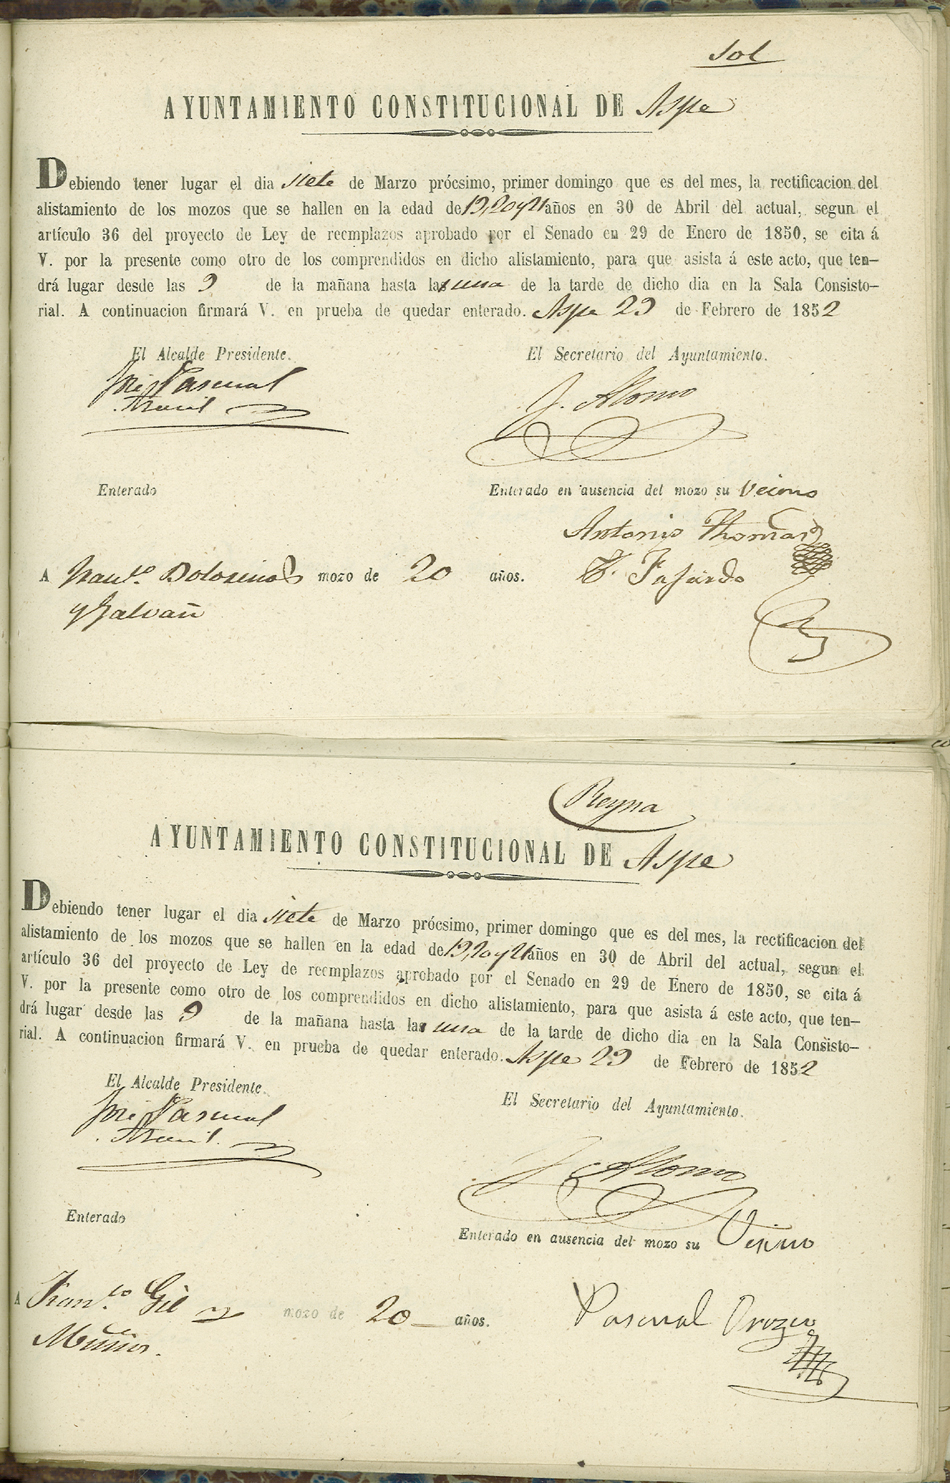 Sol
AYUNTAMIENTO CONSTITUCIONAL DE Aspe
Debiendo tener lugar el dia siete de Marzo prócsimo, primer domingo que es del mes, la rectificacion del
alistamiento de los mozos que se hallen en la edad de 19, 20 y 21 años en 30 de Abril del actual, segun el
artículo 36 del proyecto de Ley de reemplazos aprobado por el Senado en 29 de Enero de 1850, se cita á
V. por la presente como otro de los comprendidos en dicho alistamiento, para que asista á este acto, que ten–
drá lugar desde las 9 de la mañana hasta la una de la tarde de dicho dia en la Sala Consisto–
rial. A continuacion firmará V. en prueba de quedar enterado. Aspe 29 de Febrero de 1852
El Alcalde Presidente. El Secretario del Ayuntamiento.
José Pascual J. Alonso
Enterado Enterado en ausencia del mozo su Vecino
Antonio Thomas
A Franco. mozo de 20 años. Fajardo
y Galvañ
Reyna
AYUNTAMIENTO CONSTITUCIONAL DE Aspe
Debiendo tener lugar el dia siete de Marzo prócsimo, primer domingo que es del mes, la rectificacion del
alistamiento de los mozos que se hallen en la edad de 19, 20 y 21 años en 30 de Abril del actual, segun el
artículo 36 del proyecto de Ley de reemplazos aprobado por el Senado en 29 de Enero de 1850, se cita á
V. por la presente como otro de los comprendidos en dicho alistamiento, para que asista á este acto, que ten–
drá lugar desde las 9 de la mañana hasta la una de la tarde de dicho dia en la Sala Consisto–
rial. A continuacion firmará V. en prueba de quedar enterado. Aspe 29 de Febrero de 1852
El Alcalde Presidente. El Secretario del Ayuntamiento.
José Pascual J. Alonso
Enterado Enterado en ausencia del mozo su Vecino
A Franco. Gil y mozo de 20 años. Pascual Orozco